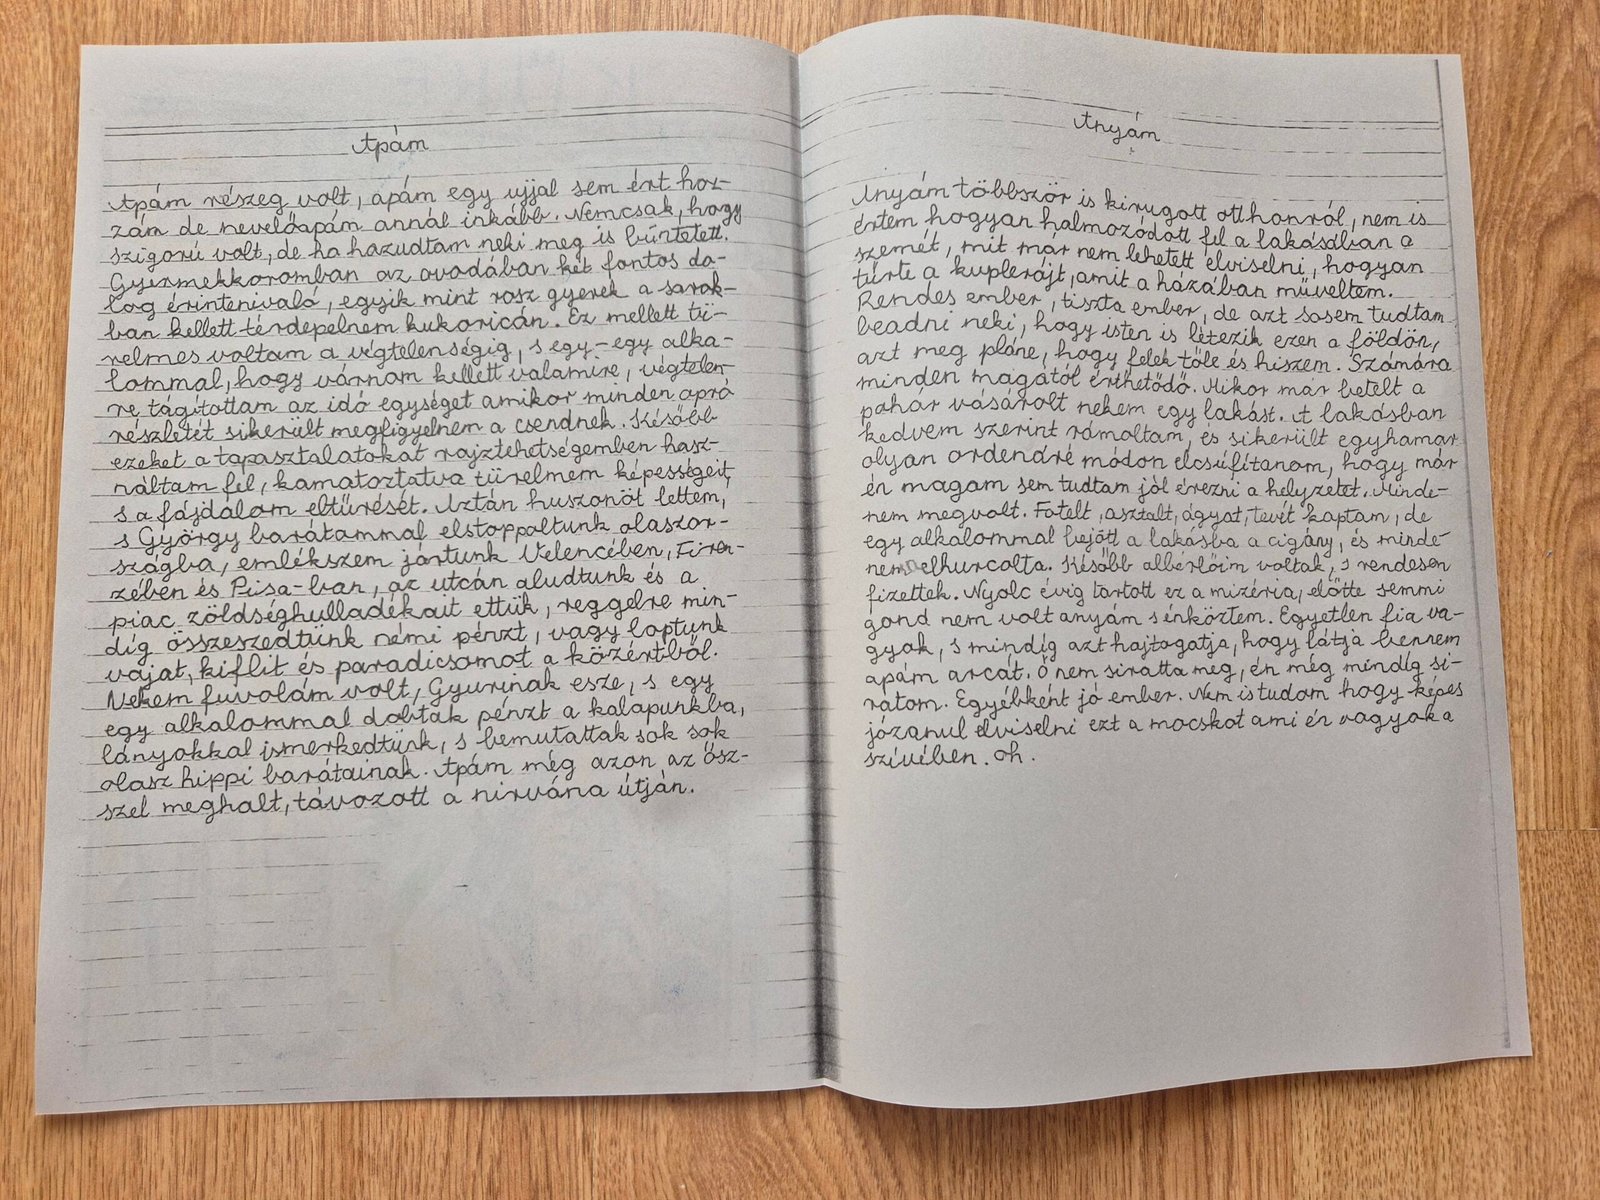 Apám
Apám részeg volt, apám egy ujjal sem ért hoz-
zám de nevelőapám annál inkább. Nemcsak, hogy
szigorú volt, de ha hazudtam neki meg is büntetett.
Gyermekkoromban az ovodában két fontos do-
log érintenivaló, egyik mint rosz gyerek a sarok-
ban kellett térdepelnem kukoricán. Ez mellett tü-
relmes voltam a végtelenségig, s egy-egy alka-
lommal, hogy várnom kellett valamire, végtelen-
re tágítottam az idő egységet amikor minden apró
részletét sikerült megfigyelnem a csendnek. Később
ezeket a tapasztalatokat rajztehetségemben hasz-
náltam fel, kamatoztatva türelmem képességeit,
s a fájdalom eltűrését. Aztán huszonöt lettem,
s György barátammal elstoppoltunk olaszor-
szágba, emlékszem jártunk Velencében, Firen-
zében és Piisa-ban, az utcán aludtunk és a
piac zöldséghulladékait ettük, reggelre min-
díg összeszedtünk némi pénzt, vagy loptunk
vajat, kiflit és paradicsomot a közértből.
Nekem fuvolám volt, Gyurinak esze, s egy
egy alkalommal dobtak pénzt a kalapunkba,
lányokkal ismerkedtünk, s bemutattak sok sok
olasz hippi barátainak. Apám még azon az ősz-
szel meghalt, távozott a nirvána útján.
Anyám
Anyám többször is kirugott otthonról, nem is
értem hogyan halmozódott fel a lakásában a
szemét, mit már nem lehetett elviselni, hogyan
tűrte a kuplerájt, amit a házában műveltem.
Rendes ember, tiszta ember, de azt sosem tudtam
beadni neki, hogy isten is létezik ezen a földön,
azt meg pláne, hogy félek tőle és hiszem. Számára
minden magától érthetődő. Mikor már betelt a
pohár vásárolt nekem egy lakást. A lakásban
kedvem szerint rámoltam, és sikerült egyhamar
olyan ordenáré módon elcsúfítanom, hogy már
én magam sem tudtam jól érezni a helyzetet. Minde-
nem megvolt. Fotelt, asztalt, ágyat, tevét kaptam, de
egy alkalommal bejött a lakásba a cigány, és minde-
nem elhurcolta. Később albérlőim voltak, s rendesen
fizettek. Nyolc évig tartott ez a mizéria, előtte semmi
gond nem volt anyám s énköztem. Egyetlen fia va-
gyok, s mindíg azt hajtogatja, hogy látja bennem
apám arcát. Ő nem siratta meg, én még mindíg si-
ratom. Egyébként jó ember. Nem is tudom hogy képes
józanul elviselni ezt a mocskot ami én vagyok a
szívében. oh.